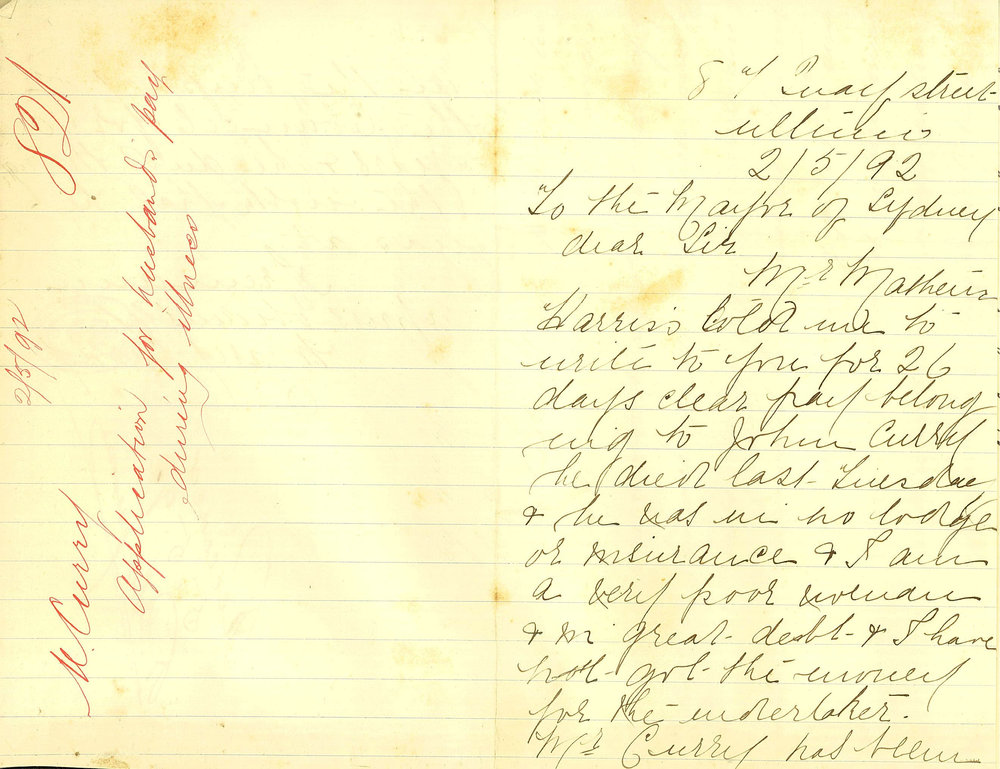 821
2/5/92
M. Curry
Application for husband's pay
during illness
8 Quay street
ultimo
2/5/92
To the Mayor of Sydney
dear Sir
Mr Mathew
Harris told me to
write to you for 26
days clear pay belong
ing to John Curry
he died last Tuesday
& he was in no lodge
or insurance & I am
a very poor woman
& in great debt & I have
not got the money
for the undertaker.
Mr Curry has been